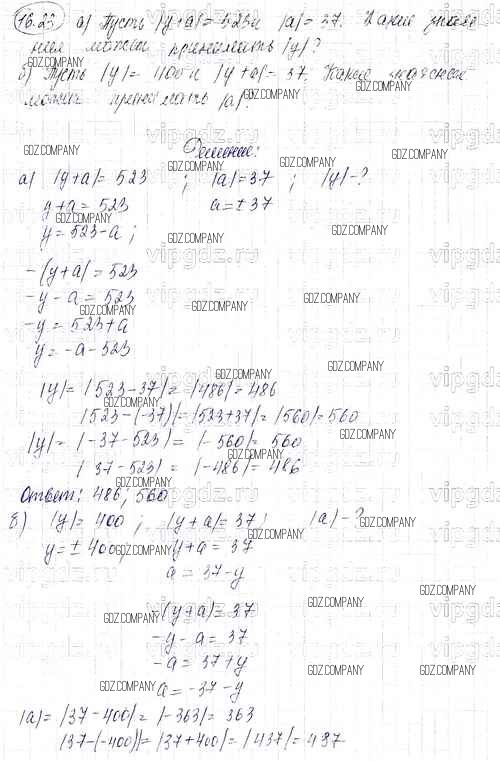 16.23 а) Пусть |y+a| = 523 и |a| = 37. Какие значе
ния может принимать |y|?
б) Пусть |y| = 400 и |y+a| = 37. Какие значения
может принимать |a|?
Решение:
а) |y+a| = 523 ; |a| = 37 ; |y| - ?
y+a = 523 a = ±37
y = 523-a ;
-(y+a) = 523
-y - a = 523
-y = 523+a
y = -a - 523
|y| = |523-37| = |486| = 486
|523-(-37)| = |523+37| = |560| = 560
|y| = |-37-523| = |-560| = 560
|37-523| = |-486| = 486
Ответ: 486; 560
б) |y| = 400 ; |y+a| = 37 ; |a| - ?
y = ±400 y+a = 37
a = 37-y
-(y+a) = 37
-y - a = 37
-a = 37+y
a = -37-y
|a| = |37-400| = |-363| = 363
|37-(-400)| = |37+400| = |437| = 437
GDZ.COMPANY
vipgdz.ru